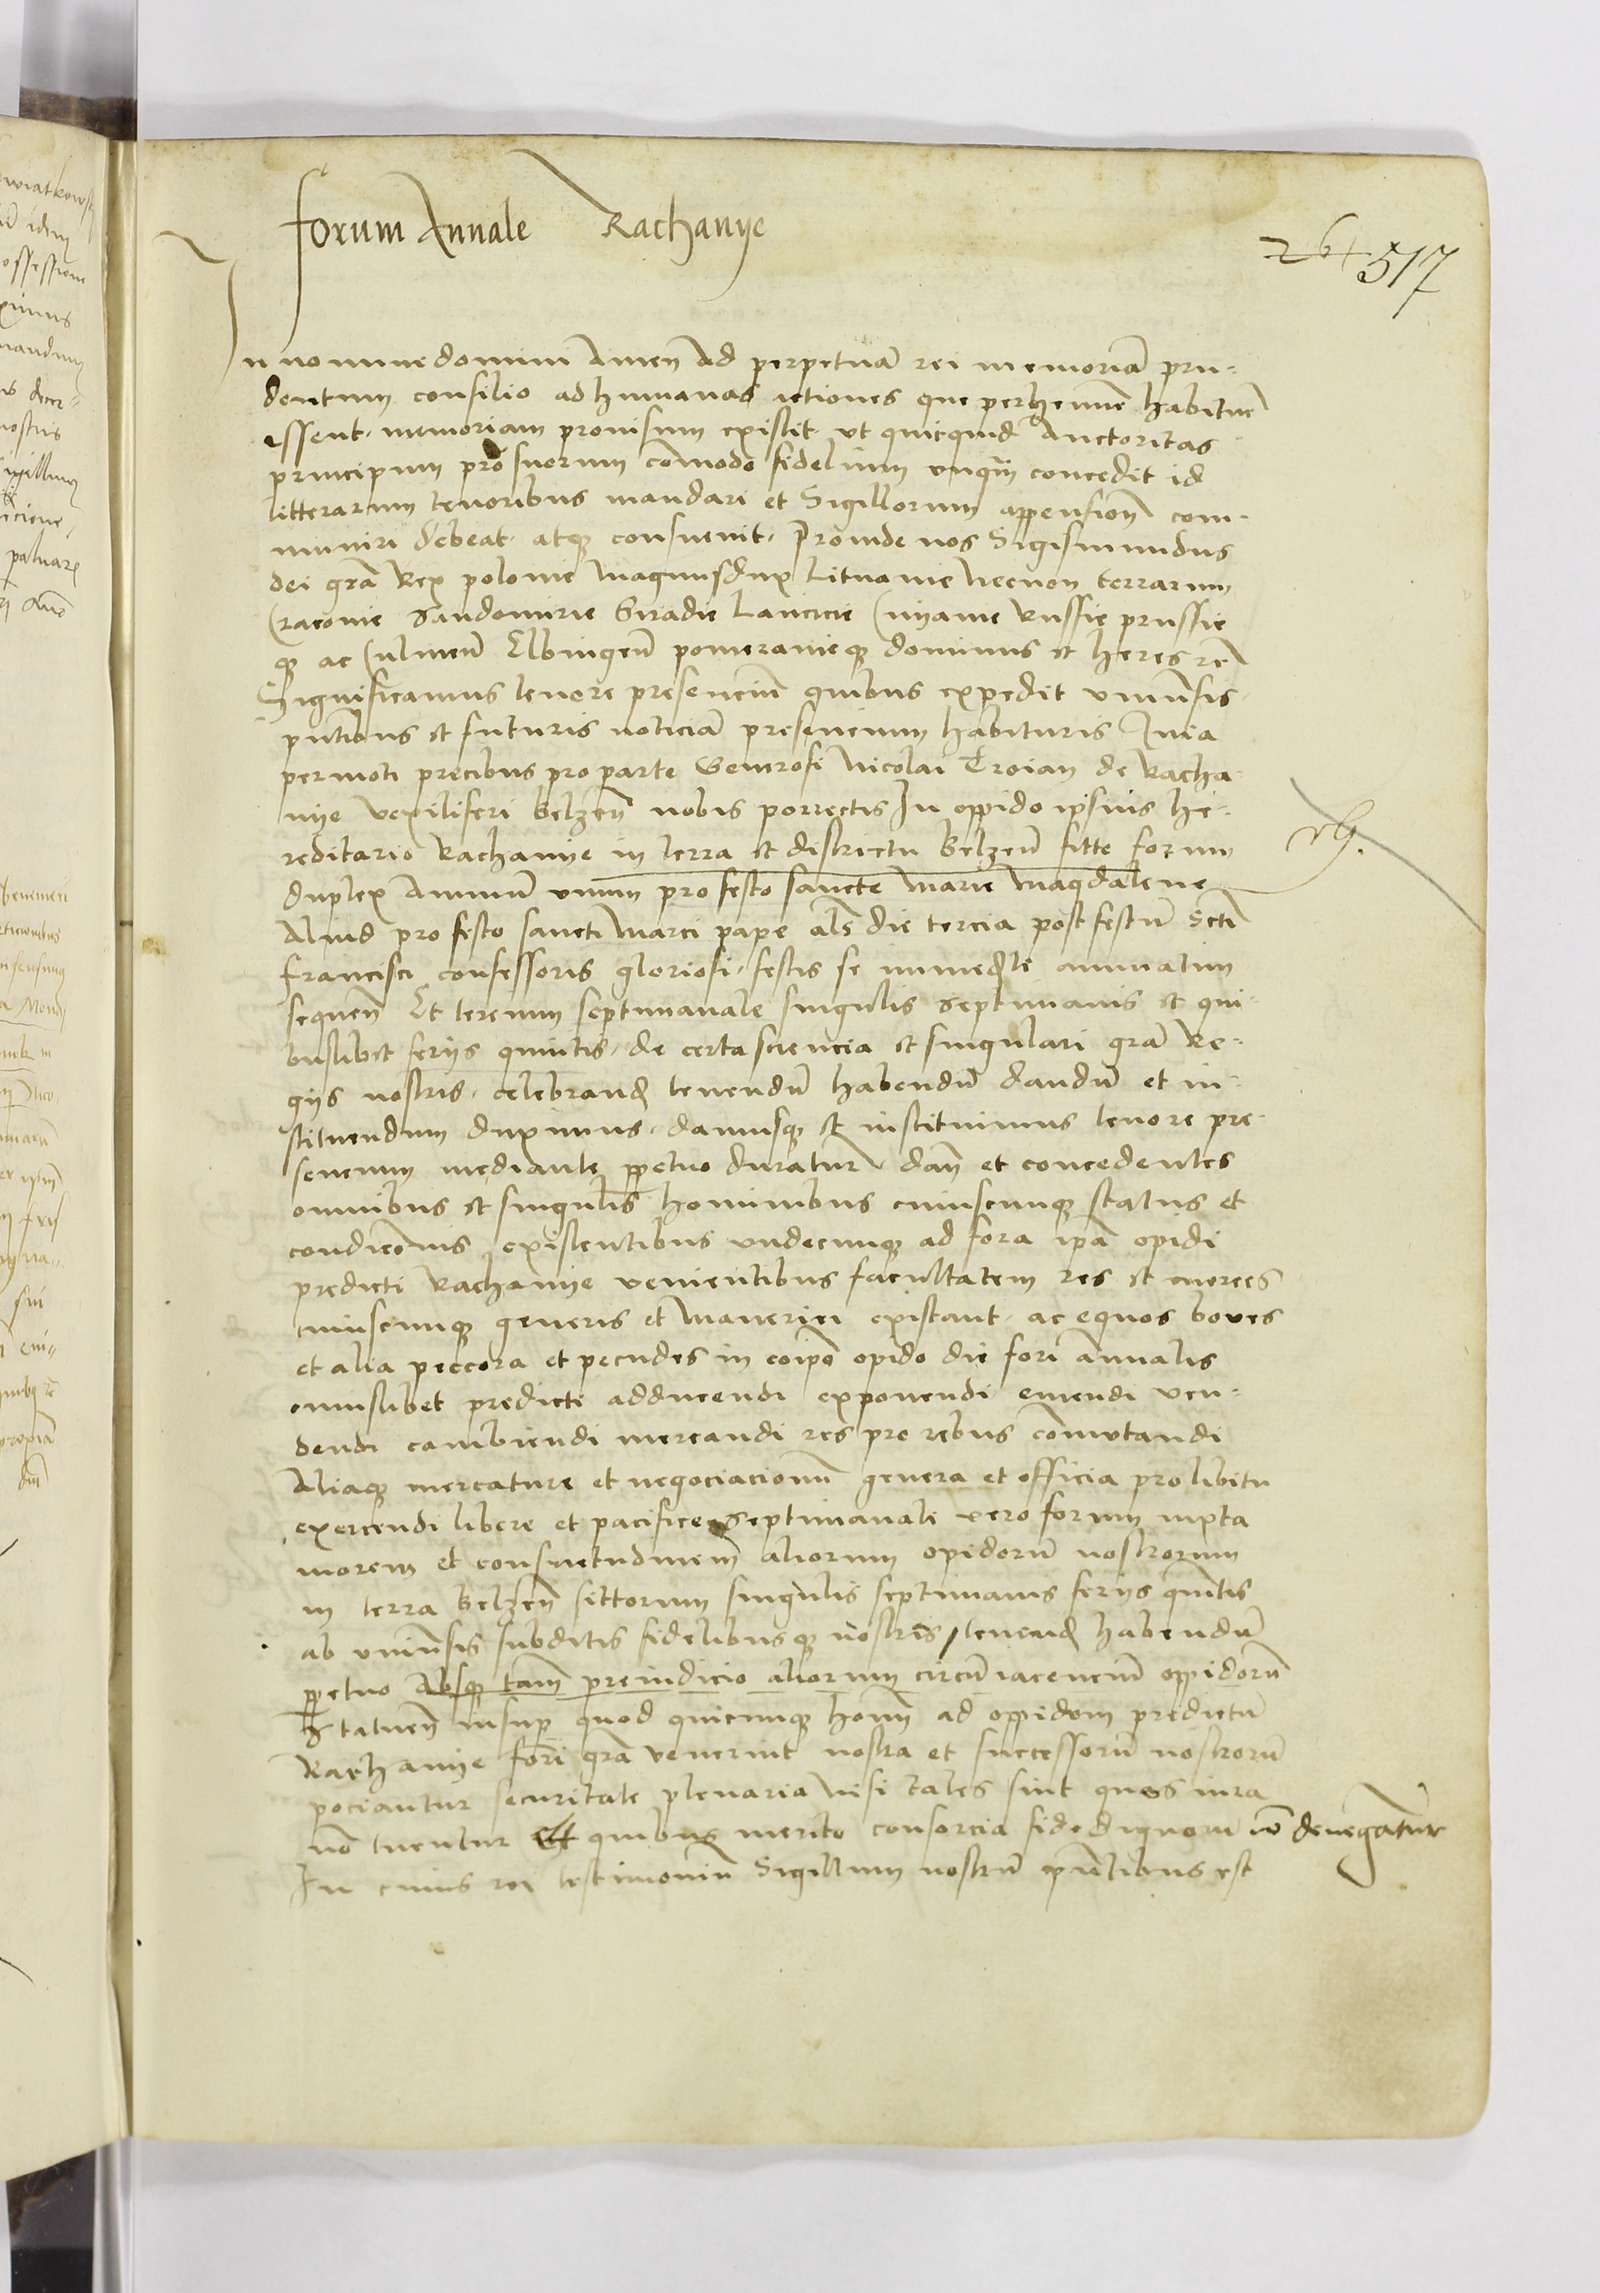 forum Annale Rachanye
264 517
In nomine domini Amen Ad perpetuã rei memoriã pru-
dentum consilio ad humanas actiones que perhennẽ habiturẽ
essent memoriam provisum existit ut quicquid Auctoritas
principum pro suorum cõmodo fidelium unqũm concedit id
litterarum tenoribus mandari et Sigillorum appensioñ com-
muniri debeat atqꝫ consuevit. Proinde nos Sigismundus
dei grã Rex polonie Magnusdux Lituanie Necnon terrarum
Cracovie Sandomirie Siradie Lancicie Cuyavie Russie prussie
qꝫ ac Culmeñ Elbingeñ pomeranieqꝫ dominus et heres rc̃
Significamus tenore presenciũ quibus expedit uniṽsis
pñtibus et futuris noticiã presencium habituris Quia
permoti precibus pro parte Generosi Nicolai Troian de Racha
nye vexiliferi Belzeñ nobis porrectis In oppido ipsius he-
reditario Rachanye in terra et districtu Belzeñ sitte forum
duplex Annuũ unum pro festo sancte Marie Magdalene
Aliud pro festo sancti Marci pape als̃ die tercia post festũ Scti
francisci confessoris gloriosi festis se immedᷓte annuatim
sequeñ Et tercium septimanale singulis septimanis et qui
buslibet feriis quintis de certa sciencia et singulari grã Re-
giis nostris celebrand̃ tenendũ habendũ dandũ et in-
stituendum duximus damusqꝫ et instituimus tenore pre-
sencium mediante ppetuo duratur dañ et concedentes
omnibus et singulis hominibus cuiuscunqꝫ status et
condicõnis existentibus undecunqꝫ ad fora ipã opidi
predicti Rachanye venientibus facultatem res et merces
cuiuscunqꝫ generis et Maneriei existant ac equos boves
et alia peccora et pecudes in eoipõ opido die fori annalis
cuiuslibet predicti adducendi exponendi emendi ven-
dendi cambiendi mercandi res pro rebus cõmutandi
Aliaqꝫ mercature et negociacionũ genera et officia pro libitu
exercendi libere et pacifice septimanale vero forum iuxta
morem et consuetudinem aliorum opidorũ nostrorum
in terra Belzeñ sittorum singulis septimanis feriis quintis
ab uniṽsis subditis fidelibusqꝫ nostris tenend̃ habendũ
ppetuo Absqꝫ tam̃ preiudicio aliorum circũiacenciũ oppidorũ
Statueñ insup quod quicunqꝫ homĩ ad oppidom predictũ
Rachanye fori grã venerint nostra et successorũ nostrorũ
pociantur securitate plenaria Nisi tales sint quos iura
nõ tuentur Et quibus merito consorcia fidedignorũ denegantur
In cuius rei testimoniũ Sigillum nostrũ pñtibus est